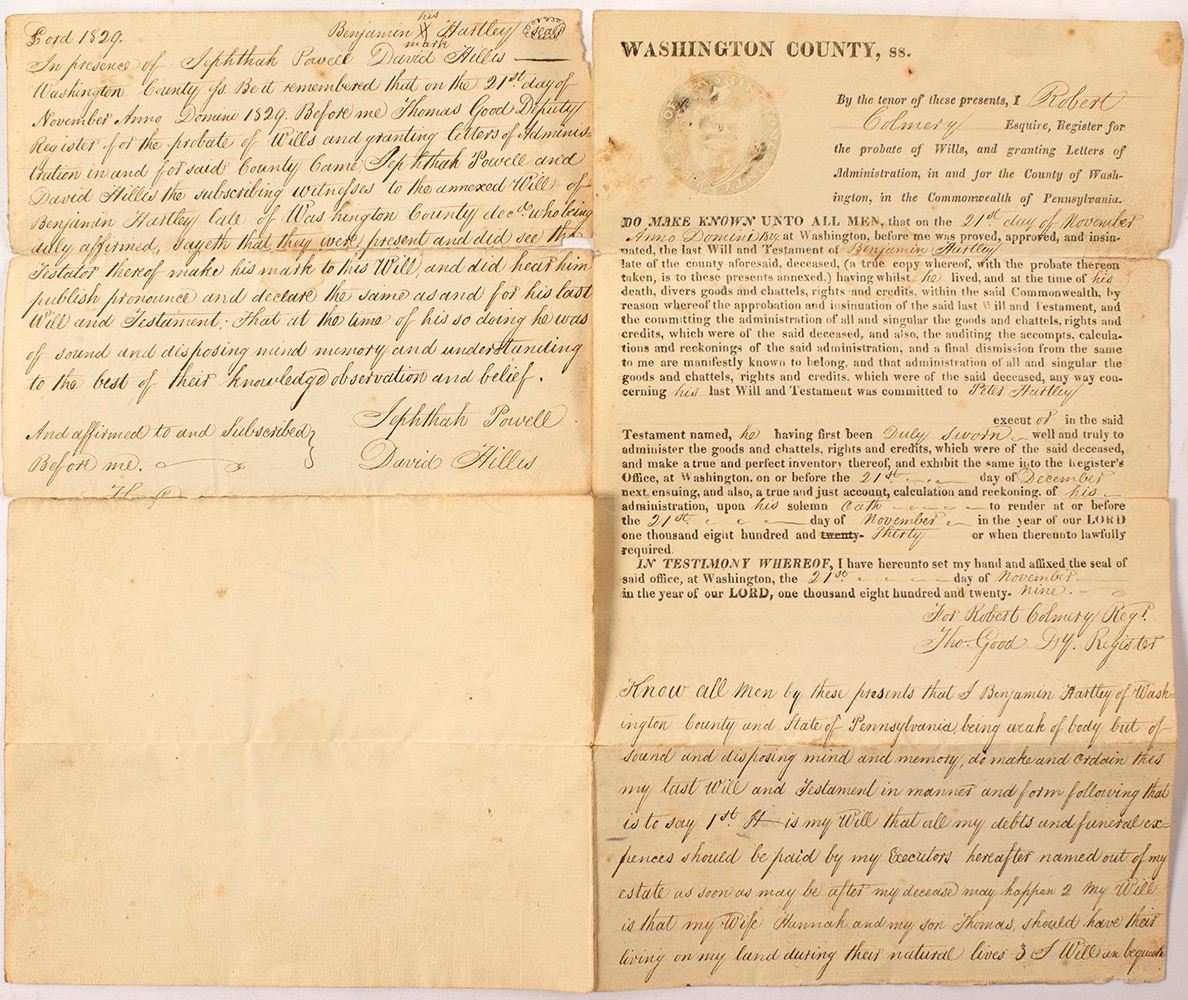 Lord 1829.
Benjamin his X mark Hartley seal
In presence of Jephthah Powell David Hillis
Washington County ss. Be it remembered that on the 21st day of
November Anno Domini 1829. Before me Thomas Good Deputy
Register for the probate of Wills and granting letters of Adminis
tration in and for said County Came Jephthah Powell and
David Hillis the subscribing witnesses to the annexed Will of
Benjamin Hartley late of Washington County decd. who being
duly affirmed, sayeth that they were present and did see the
Testator thereof make his mark to this Will, and did hear him
publish pronounce and declare the same as and for his last
Will and Testament. That at the time of his so doing he was
of sound and disposing mind memory and understanding
to the best of their knowledge observation and belief.
And affirmed to and Subscribed
Before me.
Jephthah Powell
David Hillis
WASHINGTON COUNTY, ss.
By the tenor of these presents, I Robert
Colmery Esquire, Register for
the probate of Wills, and granting Letters of
Administration, in and for the County of Wash-
ington, in the Commonwealth of Pennsylvania.
DO MAKE KNOWN UNTO ALL MEN, that on the 21st day of November
Anno Domini 1829 at Washington, before me was proved, approved, and insin-
nated, the last Will and Testament of Benjamin Hartley
late of the county aforesaid, deceased, (a true copy whereof, with the probate thereon
taken, is to these presents annexed.) having whilst he lived, and at the time of his
death, divers goods and chattels, rights and credits, within the said Commonwealth, by
reason whereof the approbation and insinuation of the said last Will and Testament, and
the committing the administration of all and singular the goods and chattels, rights and
credits, which were of the said deceased, and also, the auditing the accompts, calcula-
tions and reckonings of the said administration, and a final dismission from the same
to me are manifestly known to belong, and that administration of all and singular the
goods and chattels, rights and credits. which were of the said deceased, any way con-
cerning his last Will and Testament was committed to Peter Hartley
execut or in the said
Testament named, he having first been Duly sworn well and truly to
administer the goods and chattels, rights and credits, which were of the said deceased,
and make a true and perfect inventory thereof, and exhibit the same into the Register's
Office, at Washington. on or before the 21st day of December
next ensuing, and also, a true and just account, calculation and reckoning, of his
administration, upon his solemn Oath to render at or before
the 21st day of November in the year of our LORD
one thousand eight hundred and twenty- Thirty or when thereunto lawfully
required.
IN TESTIMONY WHEREOF, I have hereunto set my hand and affixed the seal of
said office, at Washington, the 21st day of November
in the year of our LORD, one thousand eight hundred and twenty- nine.
For Robert Colmery Regr.
Tho. Good Dy. Register
Know all Men by these presents that I Benjamin Hartley of Wash-
ington County and State of Pennsylvania, being weak of body but of
sound and disposing mind and memory, do make and ordain this
my last Will and Testament in manner and form following that
is to say 1st It is my Will that all my debts and funeral ex-
pences should be paid by my Executors hereafter named out of my
estate as soon as may be after my decease may happen 2 My Will
is that my Wife Hannah and my son Thomas, should have their
living on my land during their natural lives 3 I Will an bequeath